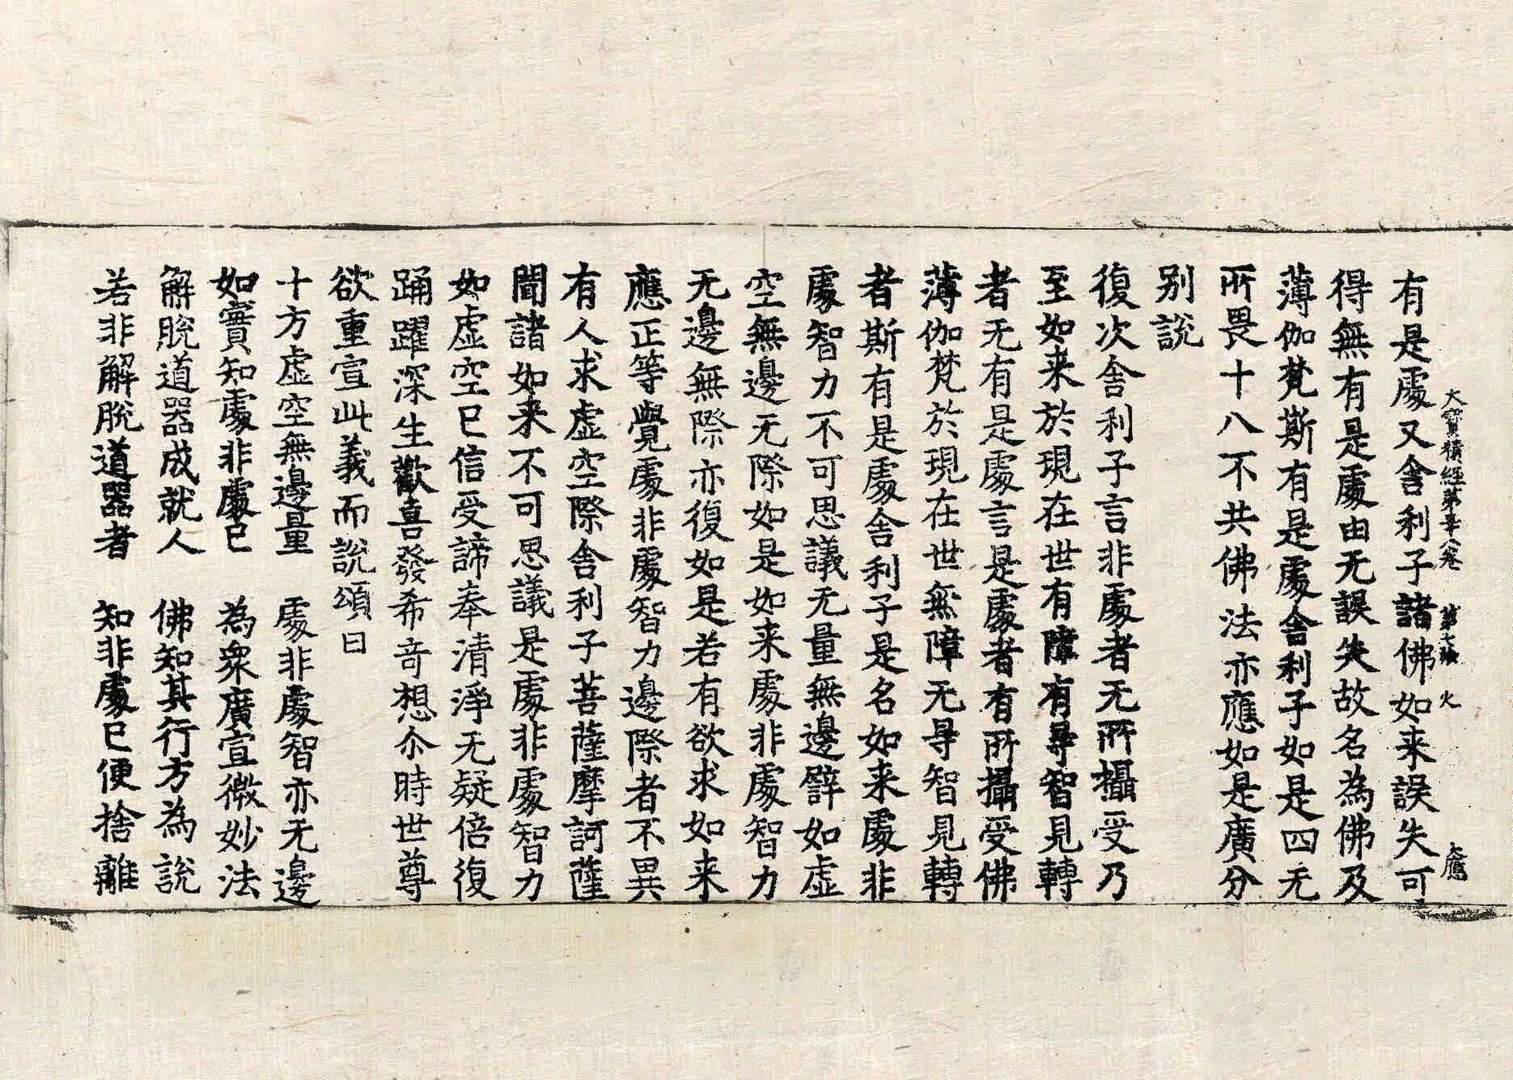 大寶積經第三十八卷　第七張　火　大應
有是處又舍利子諸佛如来誤失可
得無有是處由无誤失故名為佛及
薄伽梵斯有是處舍利子如是四无
所畏十八不共佛法亦應如是廣分
别說
復次舍利子言非處者无所攝受乃
至如来於現在世有障有㝵智見轉
者无有是處言是處者有所攝受佛
薄伽梵於現在世無障无㝵智見轉
者斯有是處舍利子是名如来處非
處智力不可思議无量無邊譬如虚
空無邊无際如是如来處非處智力
无邊無際亦復如是若有欲求如来
應正等覺處非處智力邊際者不異
有人求虚空際舍利子菩薩摩訶薩
聞諸如来不可思議是處非處智力
如虚空已信受諦奉清淨无疑倍復
踊躍深生歡喜發希奇想尒時世尊
欲重宣此義而說頌曰
十方虚空無邊量　處非處智亦无邊
如實知處非處已　為衆廣宣微妙法
解脫道器成就人　佛知其行方為說
若非解脫道器者　知非處已便捨離